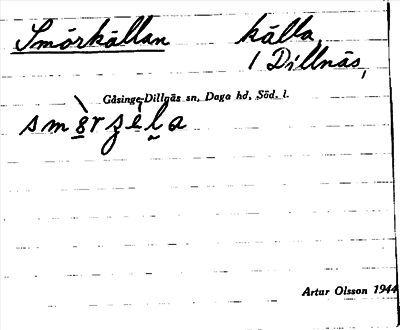 Smörkällan källa
1 Dillnäs,
Gåsinge-Dillnäs sn, Daga hd, Söd. l.
Artur Olsson 1944